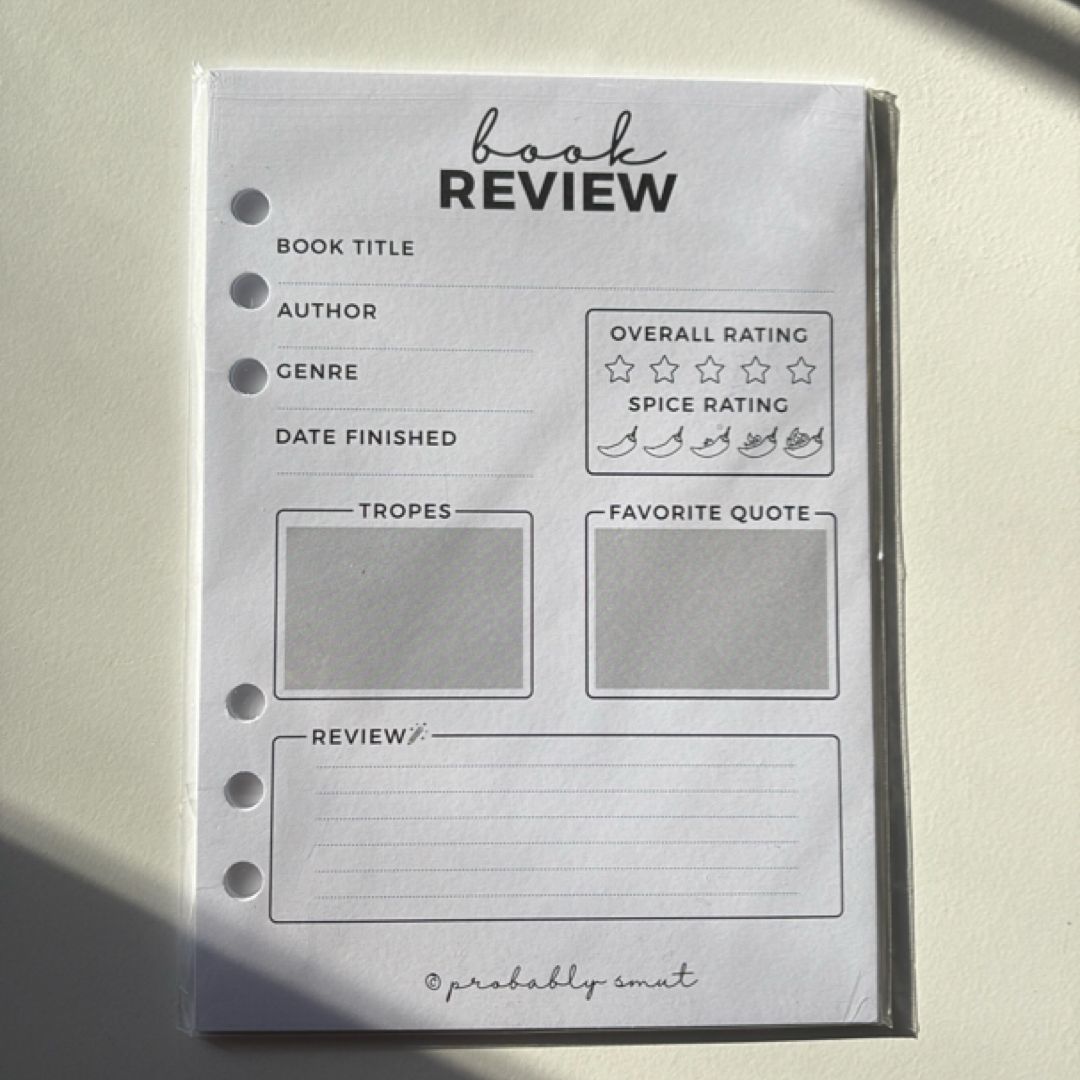 book
REVIEW
BOOK TITLE
AUTHOR
GENRE
DATE FINISHED
OVERALL RATING
SPICE RATING
TROPES
FAVORITE QUOTE
REVIEW
© probably smut